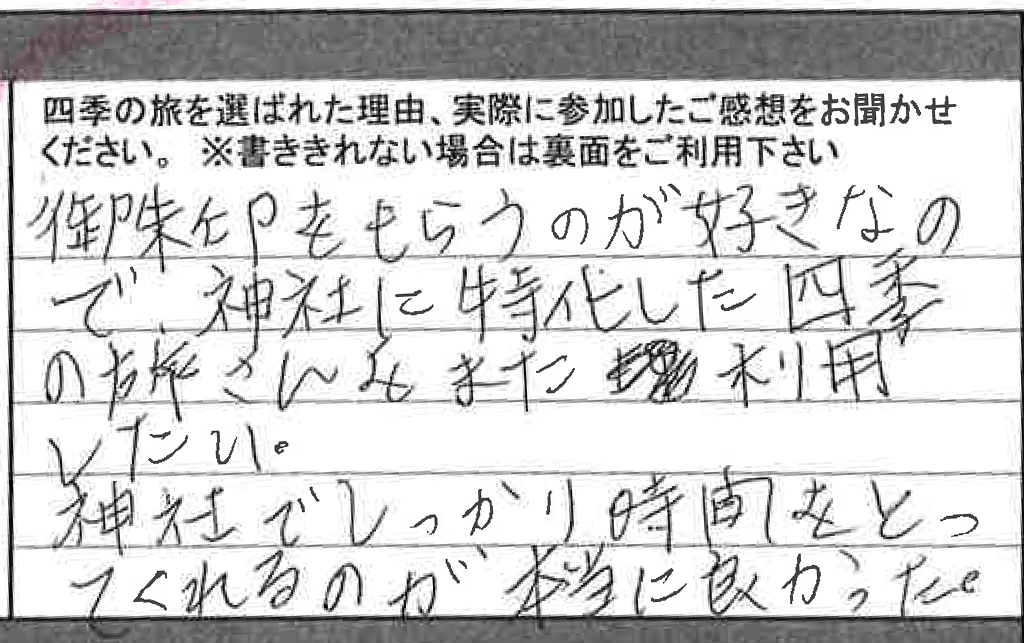 四季の旅を選ばれた理由、実際に参加したご感想をお聞かせ
ください。 ※書ききれない場合は裏面をご利用下さい
御朱印をもらうのが好きなの
で、神社に特化した四季
の旅さんをまた利用
したい。
神社でしっかり時間をとっ
てくれるのが本当に良かった。